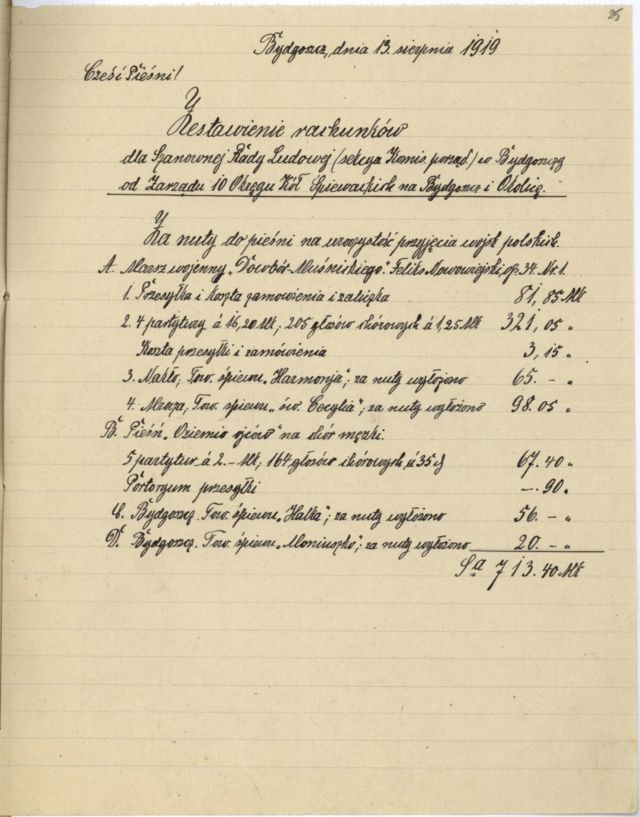 25
Bydgoszcz, dnia 13. sierpnia 1919
Cześć Pieśni!
Zestawienie rachunków
dla Szanownej Rady Ludowej (sekcya Komis. porząd) w Bydgoszczy
od Zarządu 10 Okręgu Kół Śpiewackich na Bydgoszcz i Okolicę.
Za nuty do pieśni na uroczystość przyjęcia wojsk polskich.
A. Marsz wojenny „Dowbór-Muśnickiego." Feliks Nowowiejski, op. 34. Nr. 1.
1. Przesyłka i koszta zamówienia i zaliczka 81,85 Mk
2. 4 partytury á 16,20 Mk, 205 głosów chórowych á 1,25 Mk 321,05 "
Koszta przesyłki i zamówienia 3,15 "
3. Nakło, Tow. śpiewu „Harmonja"; za nuty wyłożono 65. - "
4. Mrocza, Tow. śpiewu „św. Cecylia"; za nuty wyłożono 98.05 "
B. Pieśń „O ziemio ojców" na chór męzki.
5 partytur á 2.– Mk, 164 głosów chórowych á 35 d 67.40 "
Portorgum przesyłki –.90 "
C. Bydgoszcz. Tow. śpiewu „Halka"; za nuty wyłożono 56. – "
D. Bydgoszcz. Tow. śpiewu „Moniuszko"; za nuty wyłożono 20. – "
Sa 713.40 Mk